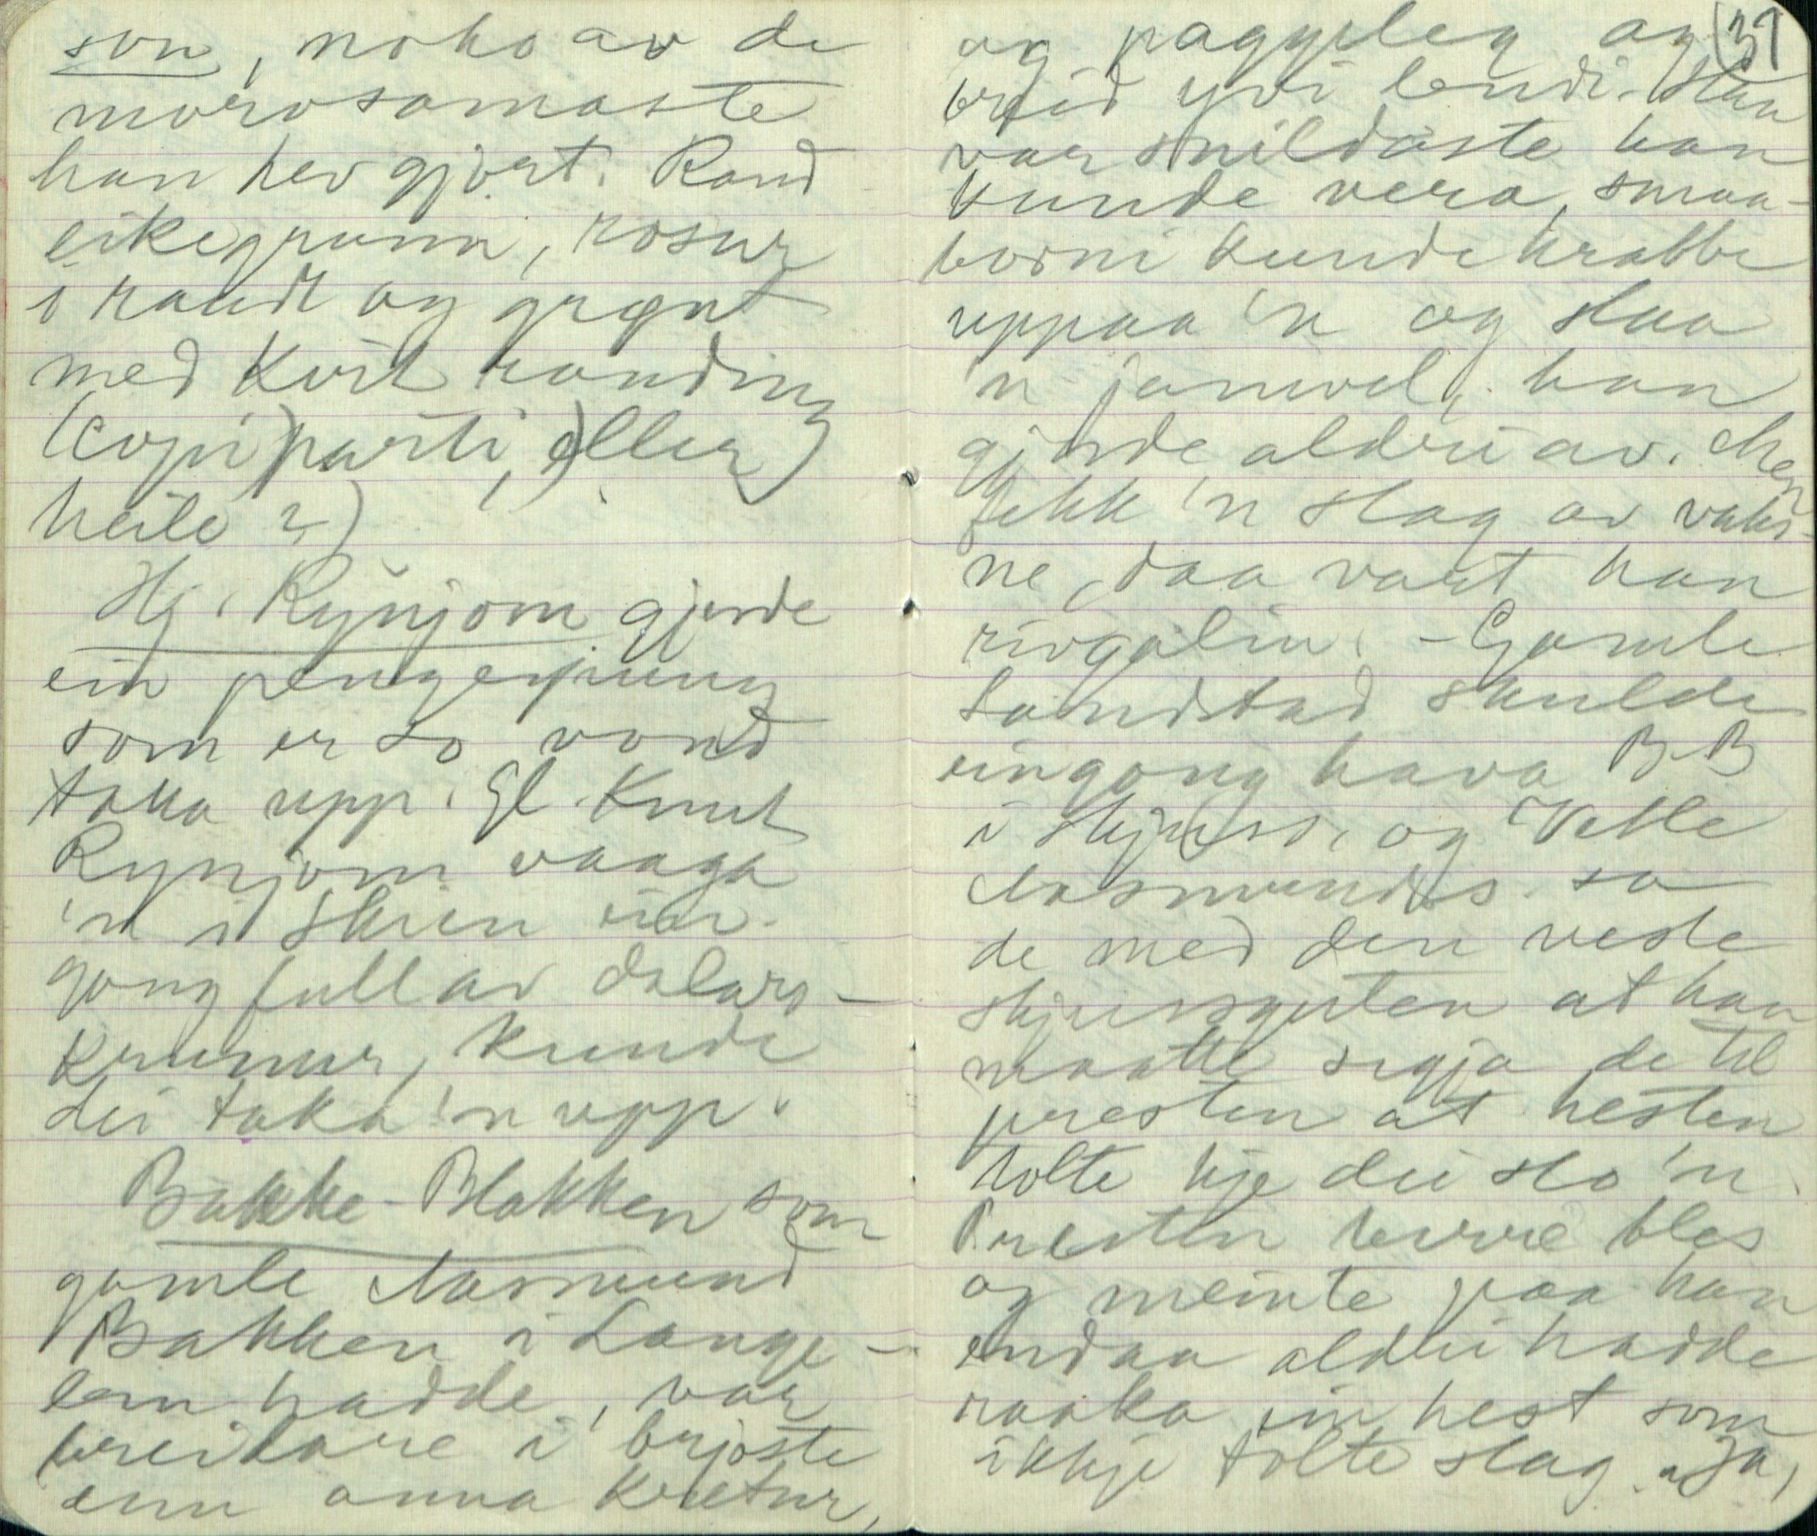 son, noko av de
morosamaste
han hev gjort. Rand
eikegrunn, rosur
i raudt og grønt
med kvit randing
(Copi) parti, eller
heile?)
Hj. Rynjom gjorde
ein pengepung
som er so vond
taka upp. Gl. Knut
Rynjom vaaga
'n i Skien ein-
gong full av dalars-
krunur, kunde
dei taka 'n upp.
Bakke-Blakken som
gamle Aasmund
Bakken i Lange-
lem hadde, var
breidare i brjoste
enn anna kretur,
39
og paggeleg og
breid yvi lendi. Han
var snildaste han
kunde vera, smaa-
borni kunde krabbe
uppaa 'n og slaa
'n jamvel, han
gjorde aldri av. Men
fekk 'n slag av vaks-
ne, daa vart han
rivgalin. – Gamle
Landstad skulde
eingong hava B.B
i skjuss, og Vetle
Aasmundss. sa
de med den vesle
skjussguten at han
maatte segja de til
presten at hesten
tolte kje dei slo 'n.
Presten berre bles
og meinte paa han
endaa aldri hadde
raaka ein hest som
ikkje tolte slag. "Ja,